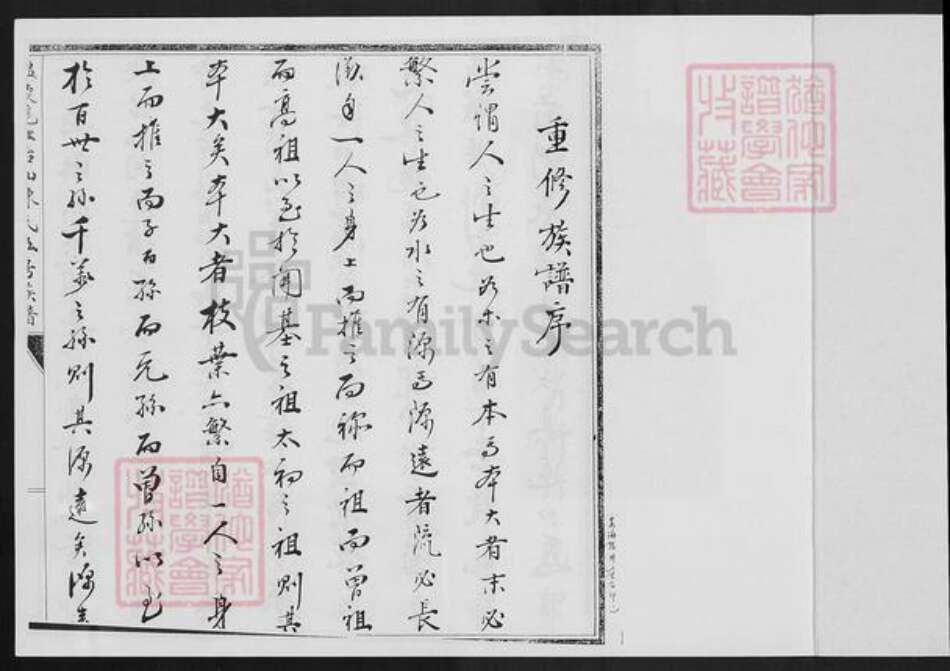 重修族譜序
嘗謂人之生也若木之有本焉本大者末必
繁人之生也若水之有源焉源遠者流必長
自一人之身上而推之而祢而祖而曾祖
而高祖以至於開基之祖太初之祖則其
本大矣本大者枝葉亦繁自一人之身
上而推之而子而孫而元孫而曾孫以至
於百世之孫千葉之孫則其源遠矣源遠
FamilySearch
譜學會
收藏
譜學會
收藏